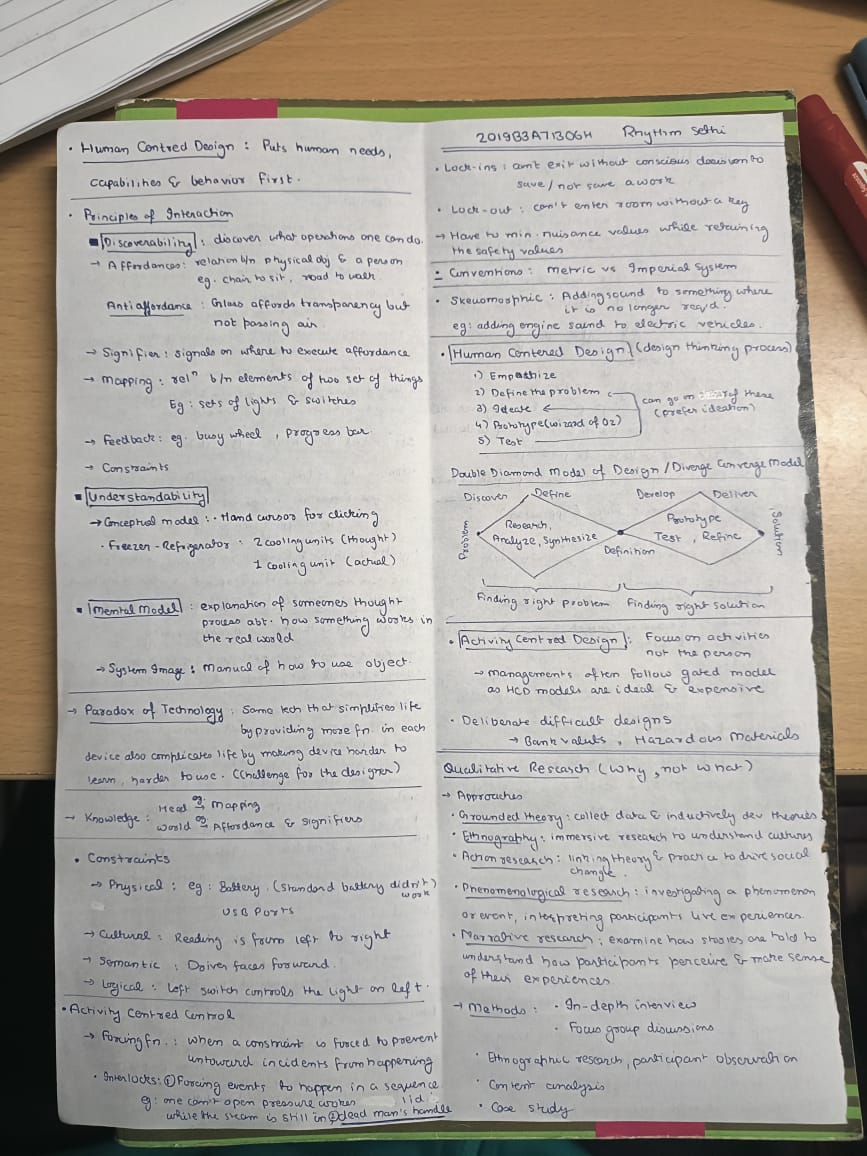 • Human Centred Design : Puts human needs,
capabilities & behavior first.
• Principles of Interaction
■ Discoverability : discover what operations one can do.
→ Affordances : relation b/n physical obj & a person
eg. chair to sit, road to walk
Anti affordance : Glass affords transparency but
not passing air
→ Signifier : signals on where to execute affordance
→ Mapping : relⁿ b/n elements of two set of things
Eg : sets of lights & switches
→ Feedback : eg. busy wheel, progress bar.
→ Constraints
■ Understandability
→ Conceptual model : • Hand cursor for clicking
• Freezer - Refrigerator : 2 cooling units (thought)
1 cooling unit (actual)
■ Mental Model : explanation of someones thought
process abt. how something works in
the real world
→ System Image : Manual of how to use object.
→ Paradox of Technology : Same tech that simplifies life
by providing more fn. in each
device also complicates life by making device harder to
learn, harder to use. (Challenge for the designer)
→ Knowledge : Head eg→ Mapping
World eg→ Affordance & Signifiers
• Constraints
→ Physical : eg : Battery. (Standard battery didn't work)
USB Ports
→ Cultural : Reading is from left to right
→ Semantic : Driver faces forward.
→ Logical : Left switch controls the light on left.
• Activity Centred Control
→ Forcing fn. : when a constraint is forced to prevent
untoward incidents from happening
• Interlocks : ① Forcing events to happen in a sequence
eg : one can't open pressure lid
while the steam is still in ② dead man's handle
2019B3A7130GH Rhythm Sethi
• Lock-ins : can't exit without conscious decision to
save / not save a work
• Lock-out : can't enter room without a key
→ Have to min. nuisance values while retaining
the safety values
: Conventions : metric vs Imperial System
• Skeuomorphic : Adding sound to something where
it is no longer reqd.
eg : adding engine sound to electric vehicles.
• Human Centered Design (design thinking process)
1) Empathize
2) Define the problem
3) Ideate
4) Prototype (wizard of Oz)
5) Test
can go in of these
(prefer ideation)
Double Diamond Model of Design / Diverge Converge Model
Discover Define Develop Deliver
Problem
Research,
Analyze, Synthesize
Definition
Prototype
Test, Refine
Solution
Finding right problem Finding right solution
• Activity Centred Design : Focus on activities
not the person
→ managements often follow gated model
as HCD models are ideal & expensive
• Deliberate difficult designs
→ Bank vaults, Hazardous Materials
Qualitative Research (Why, not what)
→ Approaches
• Grounded theory : collect data & inductively dev theories
• Ethnography : immersive research to understand cultures
• Action research : linking theory & practice to drive social
change.
• Phenomenological research : investigating a phenomenon
or event, interpreting participants live experiences.
• Narrative research : examine how stories are told to
understand how participants perceive & make sense
of their experiences
→ Methods : • In-depth interview
• Focus group discussions
• Ethnographic research, participant observation
• Content analysis
• Case study